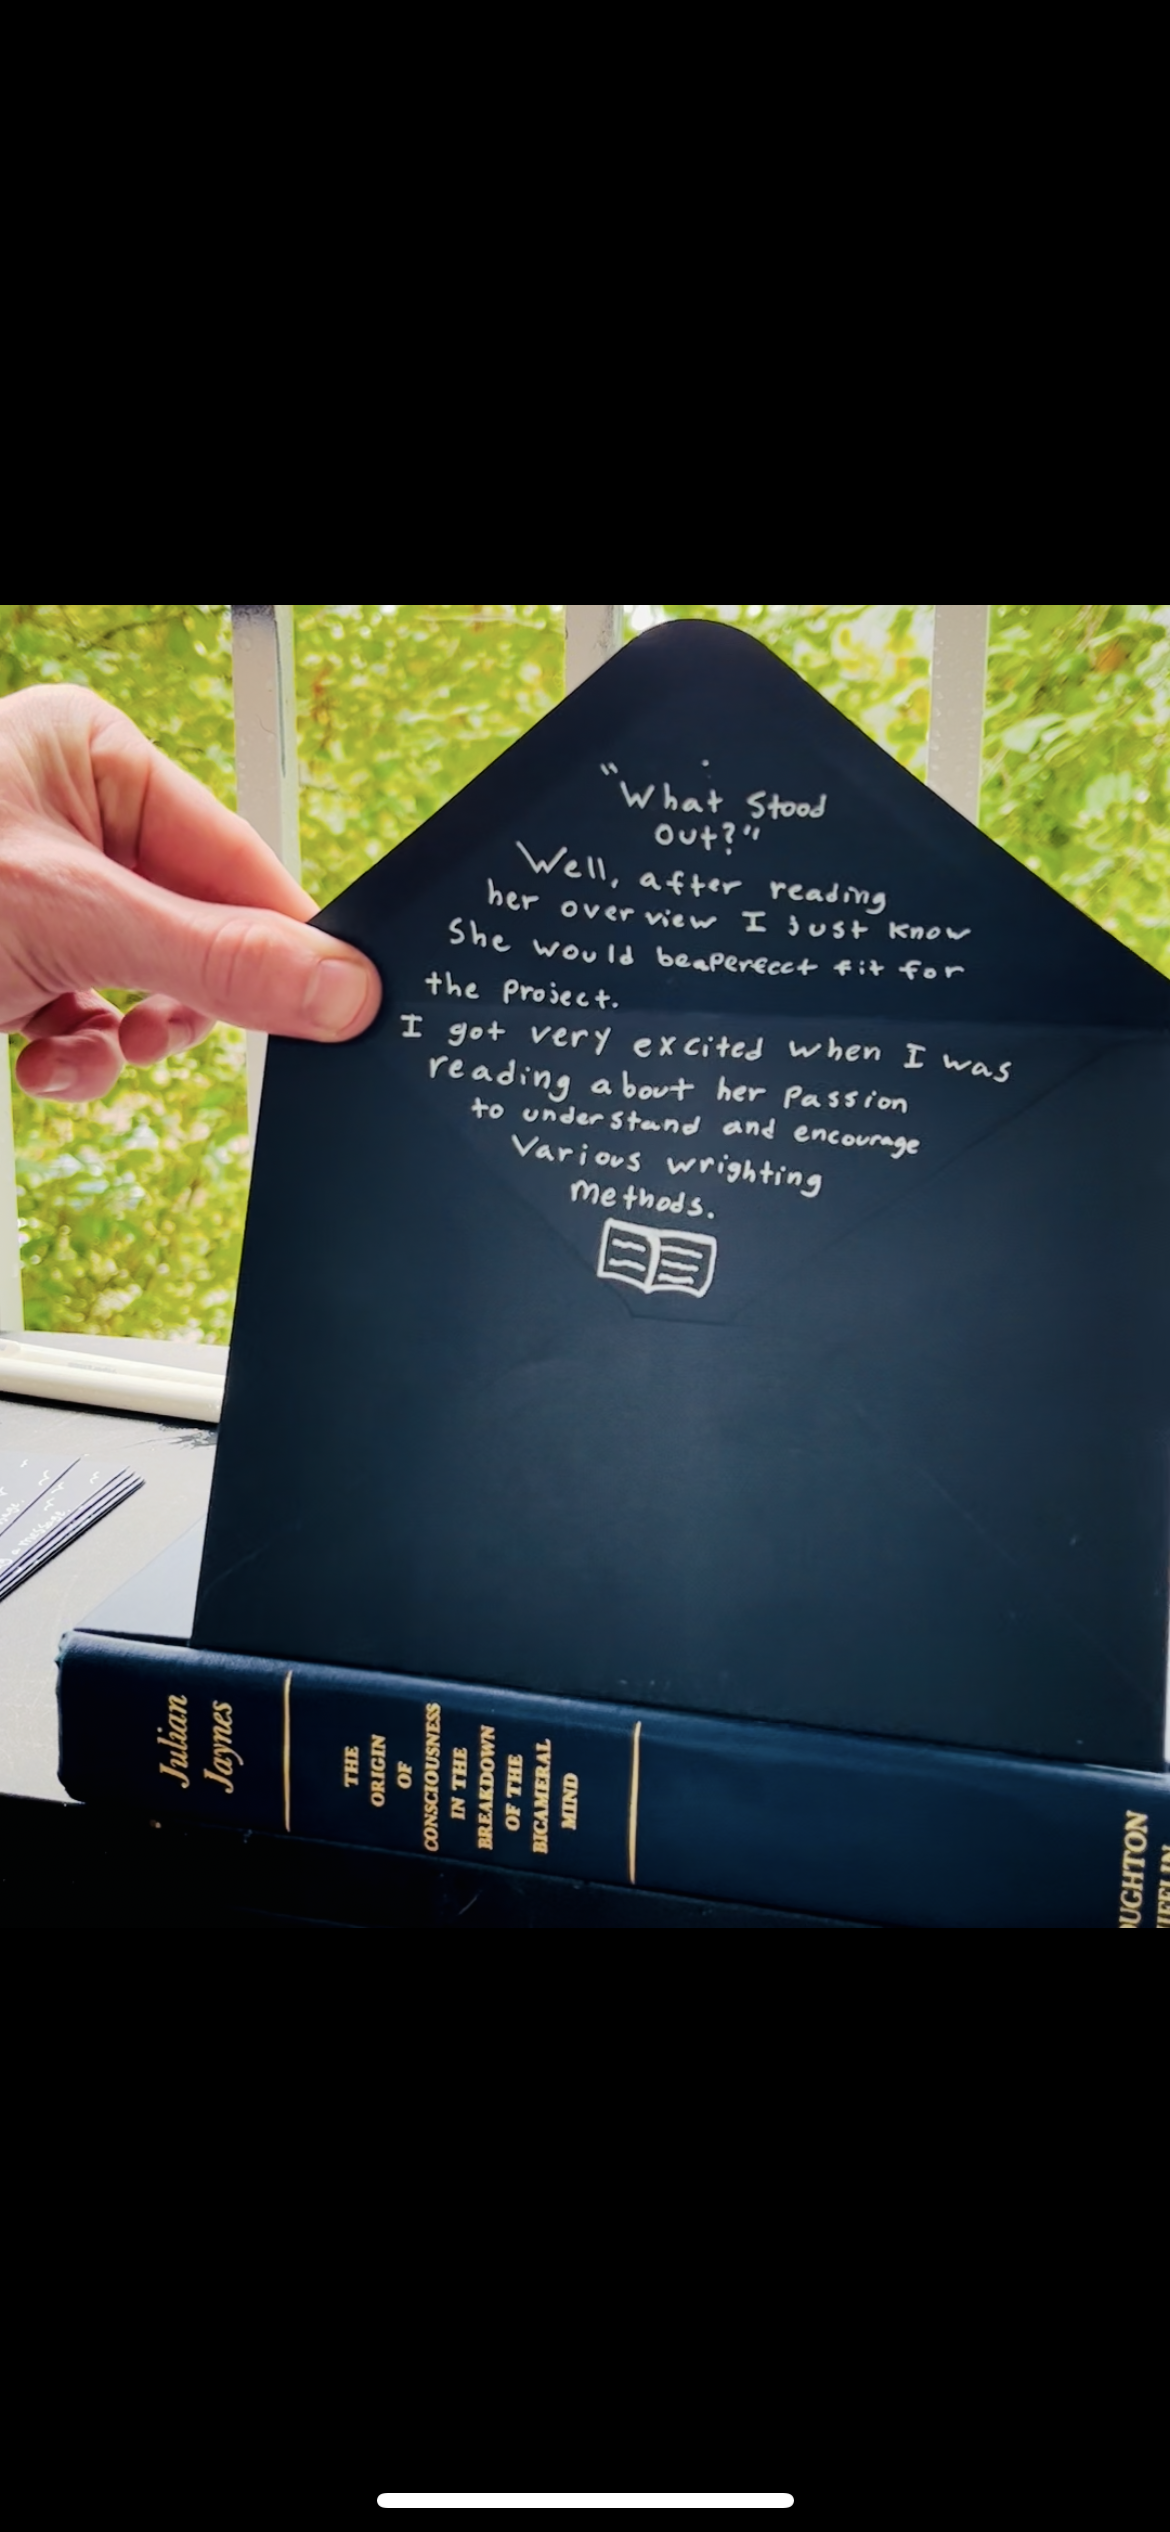 "What Stood
out?"
Well, after reading
her over view I just know
She would beaperfect fit for
the project.
I got very excited when I was
reading about her passion
to understand and encourage
Various wrighting
methods.
Julian
Jaynes
THE
ORIGIN
OF
CONSCIOUSNESS
IN THE
BREAKDOWN
OF THE
BICAMERAL
MIND
OUGHTON
a message